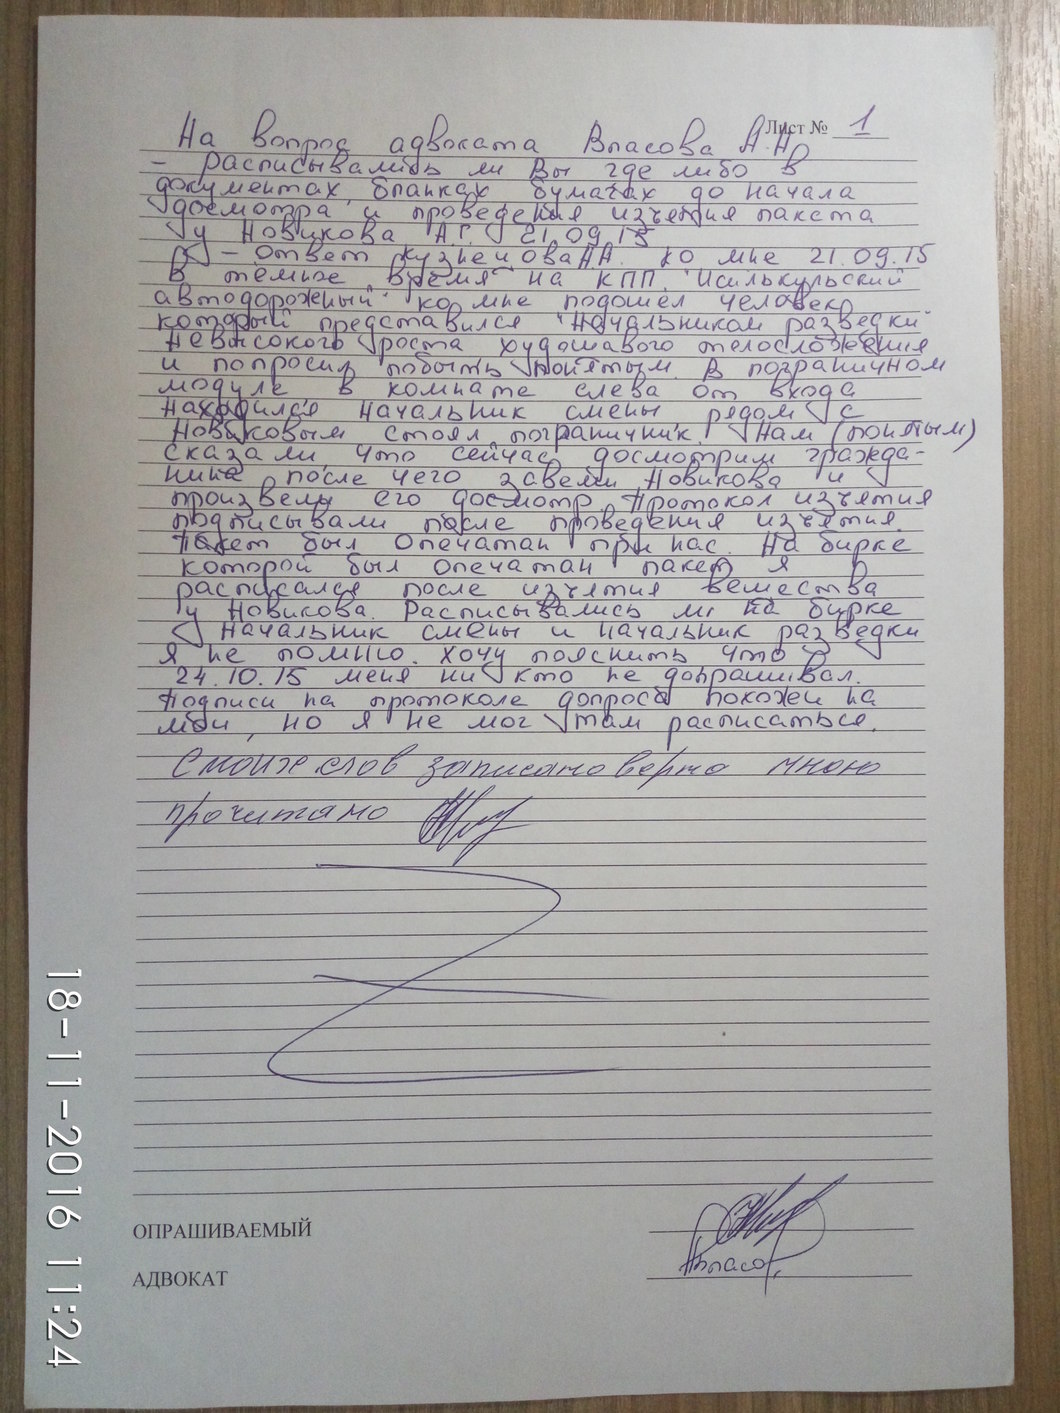 Лист № 1
На вопрос адвоката Власова А.Н
- расписывались ли Вы где либо в
документах, бланках бумагах до начала
досмотра и проведения изъятия пакета
у Новикова А.Г. 21.09.15
- ответ Кузнецова А.А. ко мне 21.09.15
в тёмное время на КПП "Исилькульский
автодорожный" ко мне подошёл человек
который представился "Начальником разведки"
невысокого роста худощавого телосложения
и попросил побыть понятым. В пограничном
модуле в комнате слева от входа
находился начальник смены рядом с
Новиковым стоял пограничник. Нам (понятым)
сказали что сейчас досмотрим гражда-
нина после чего завели Новикова и
произвели его досмотр. Протокол изъятия
подписывали после проведения изъятия.
Пакет был опечатан при нас. На бирке
которой был опечатан пакет я
расписался после изъятия вещества
у Новикова. Расписывались ли на бирке
начальник смены и начальник разведки
я не помню. Хочу пояснить что
24.10.15 меня ни кто не допрашивал.
Подписи на протоколе допроса похожи на
мои, но я не мог там расписаться.
С моих слов записано верно мною
прочитано
ОПРАШИВАЕМЫЙ
АДВОКАТ
Власов
18-11-2016 11:24